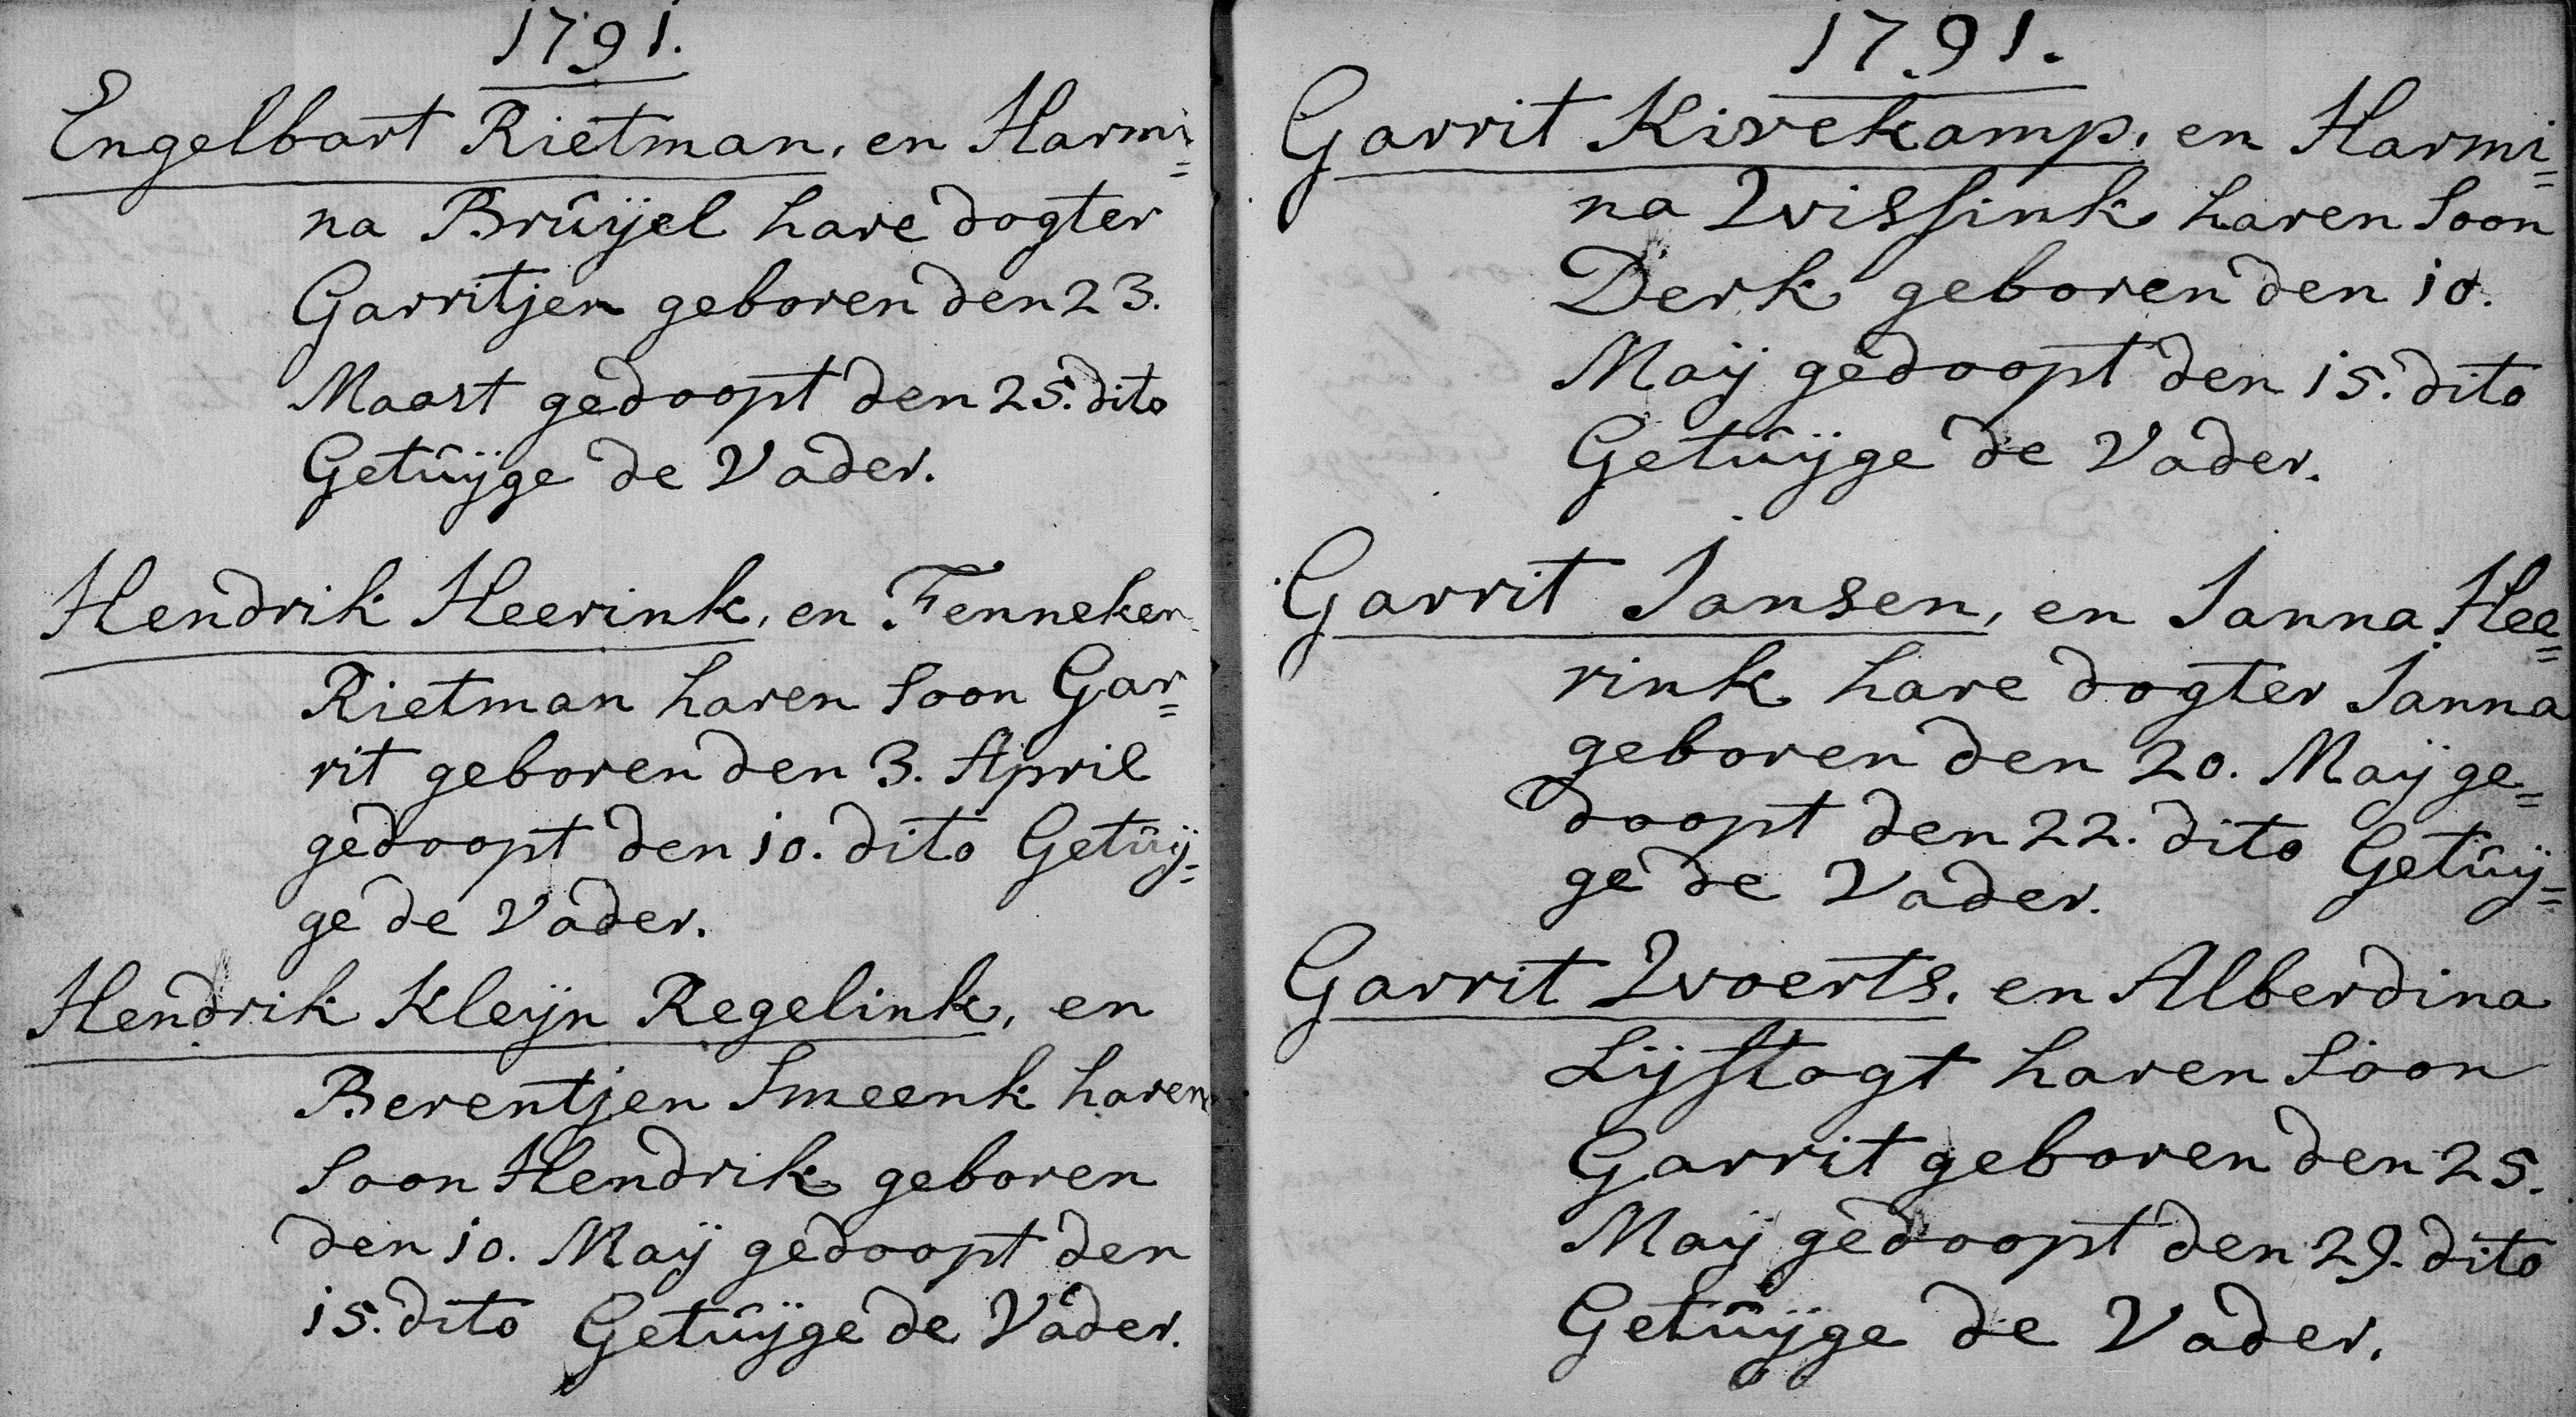 1791.
Engelbart Rietman, en Harmi=
na Brûÿel hare dogter
Garritjen geboren den 23.
Maart gedoopt den 25. dito
Getûÿge de Vader.
Hendrik Heerink, en Fenneken
Rietman haren Soon Gar=
rit geboren den 3. April
gedoopt den 10. dito Getûÿ=
ge de Vader.
Hendrik Kleÿn Regelink, en
Berentjen Smeenk haren
Soon Hendrik geboren
den 10. Maÿ gedoopt den
15. dito Getûÿge de Vader.
1791.
Garrit Kivekamp, en Harmi=
na Wissink haren Soon
Derk geboren den 10.
Maÿ gedoopt den 15. dito
Getûÿge de Vader.
Garrit Jansen, en Janna Hee=
rink hare dogter Janna
geboren den 20. Maÿ ge=
doopt den 22. dito Getûÿ=
ge de Vader.
Garrit Woerts, en Alberdina
Lÿftogt haren Soon
Garrit geboren den 25.
Maÿ gedoopt den 29. dito
Getûÿge de Vader.